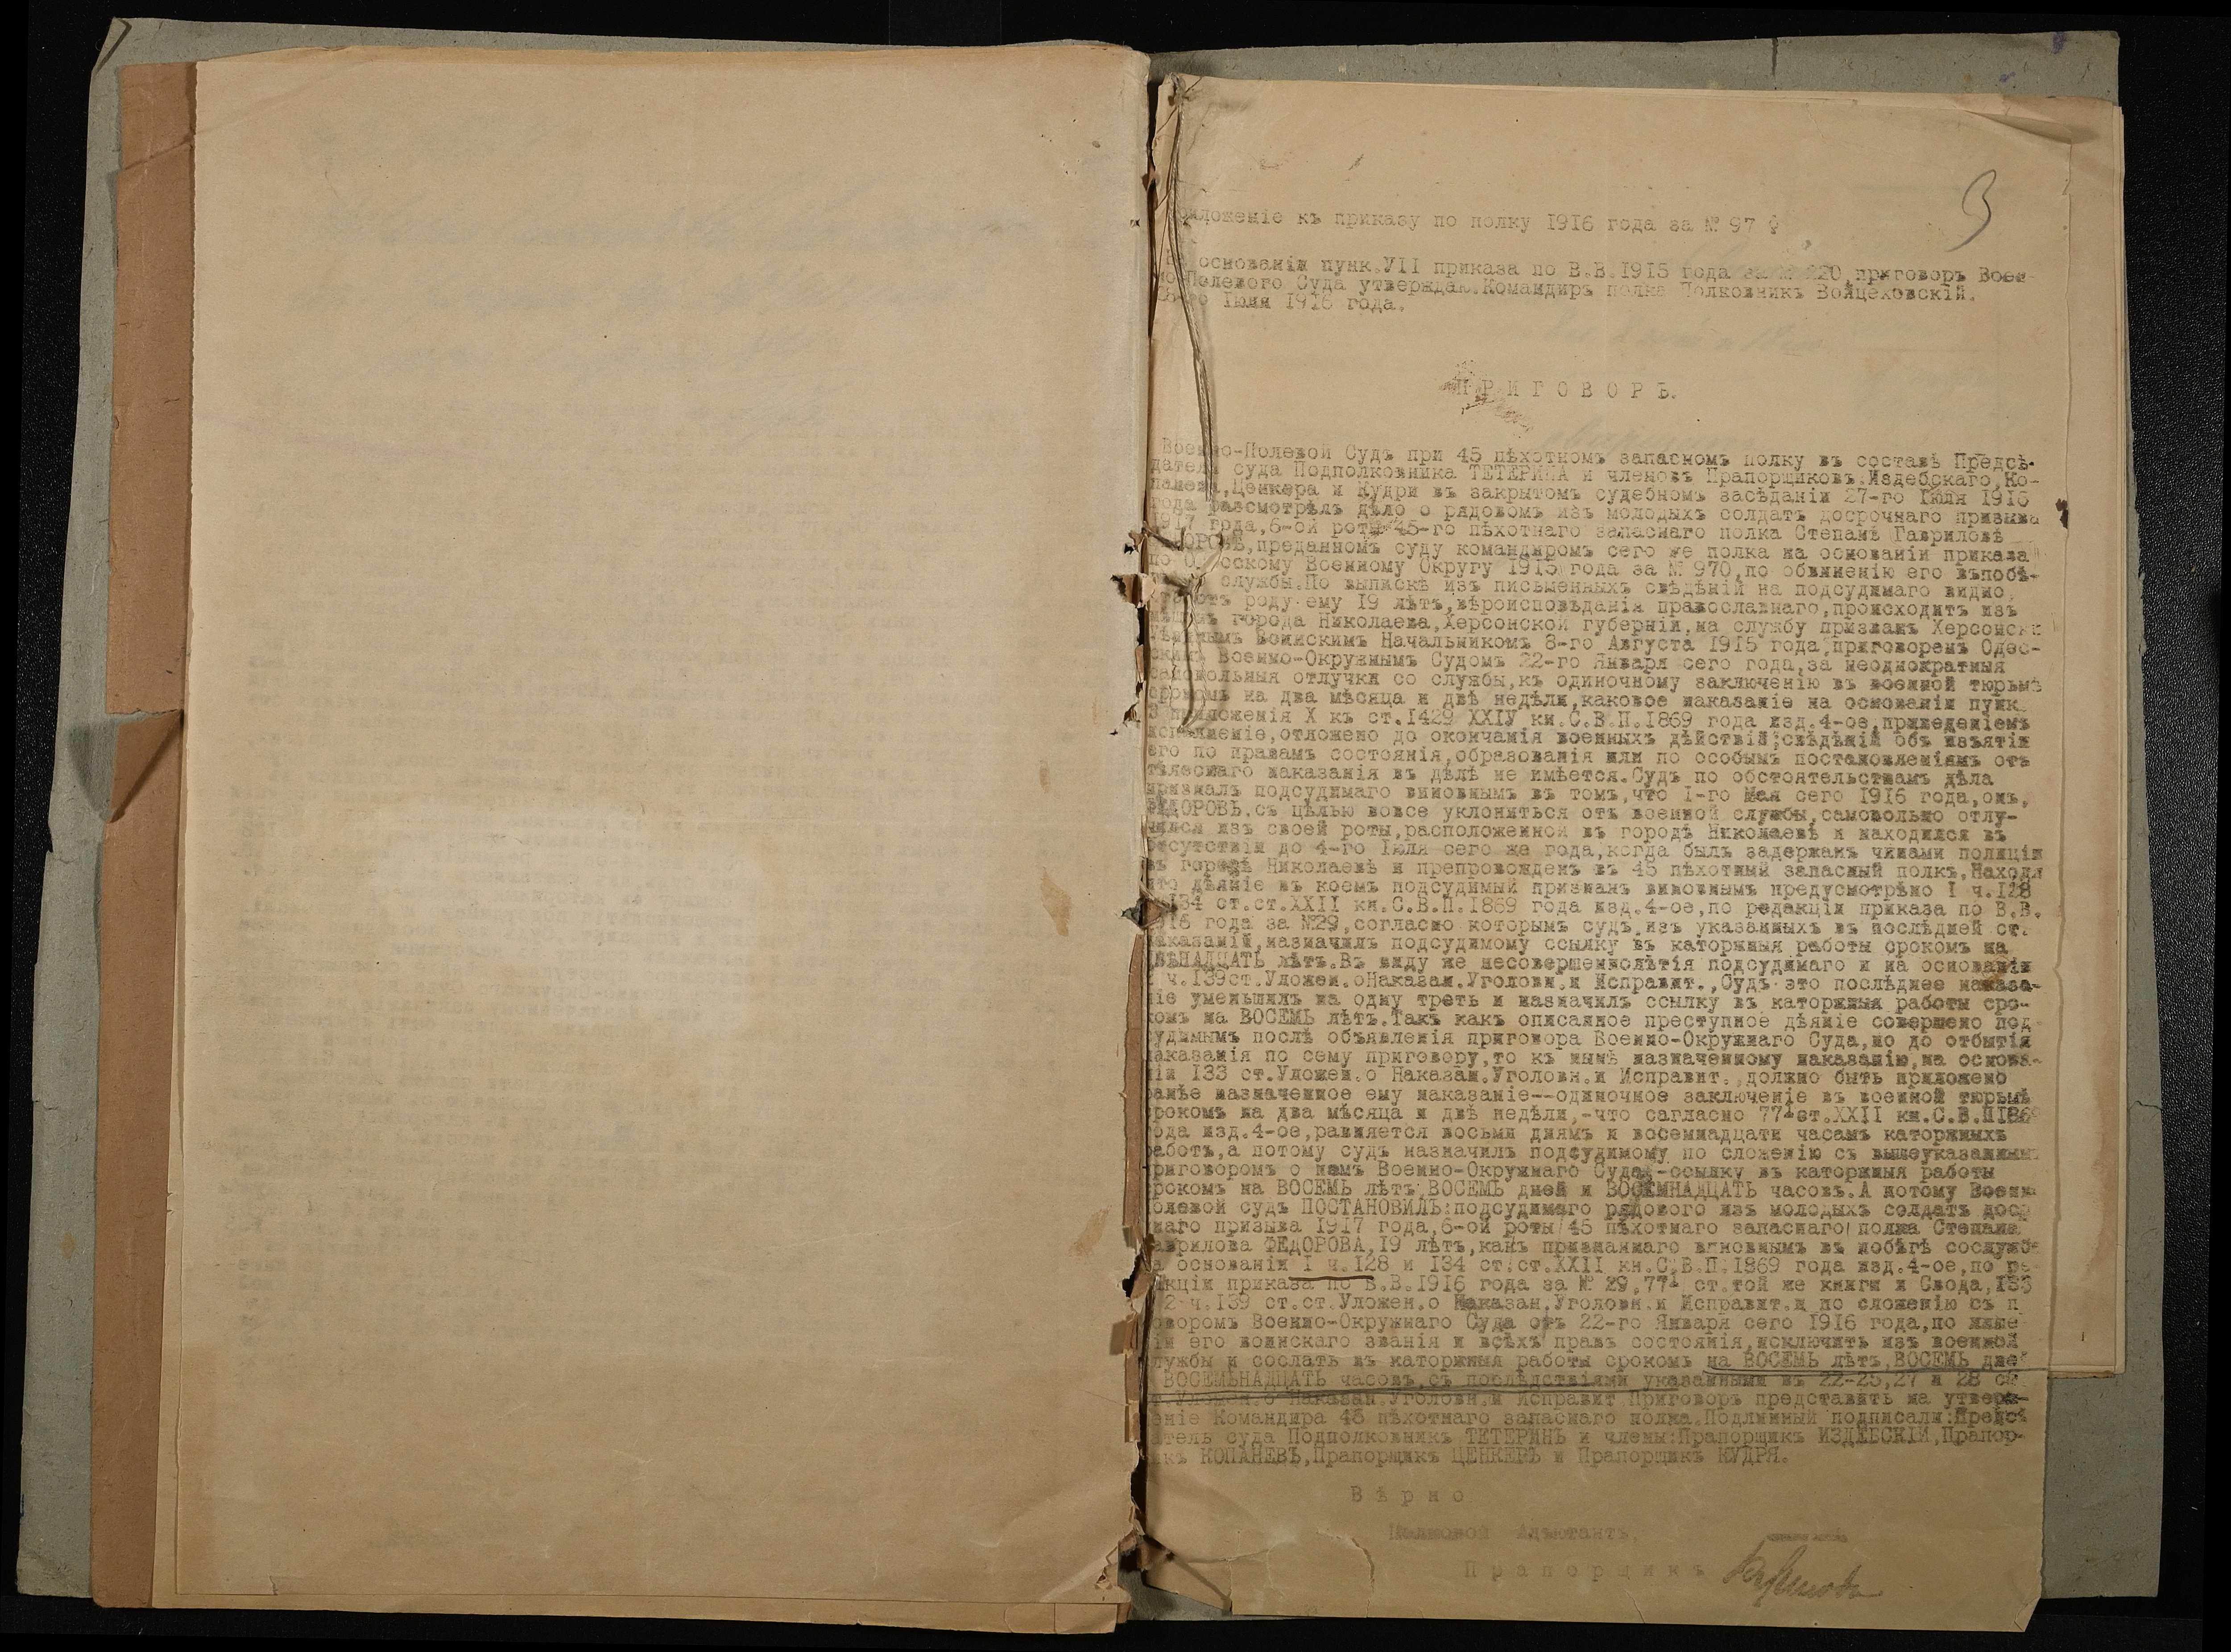 3
риложеніе къ приказу по полку 1916 года за № 97
основаніи пунк.УІІ приказа по В.В.1915 года за № 220,приговоръ Воен-
но-Полевого Суда утверждаю.Командиръ полка Полковникъ Войцеховскій.
го Іюля 1916 года.
ПРИГОВОРЪ.
Военно-Полевой Судъ при 45 пѣхотномъ запасномъ полку въ составѣ Предсѣ-
дателя суда Подполковника ТЕТЕРИНА и членовъ Прапорщиковъ:Издебскаго,Ко-
панева,Ценкера и Кудри въ закрытомъ судебномъ засѣданіи 27-го Іюля 1916
года разсмотрѣлъ дѣло о рядовомъ изъ молодыхъ солдатъ досрочнаго призыва
1917 года,6-ой роты 45-го пѣхотнаго запаснаго полка Степанѣ Гавриловѣ
ДОРОВѢ,преданномъ суду командиромъ сего же полка на основаніи приказа
по О сскому Военному Округу 1915 года за № 970,по обвиненію его въпобѣ-
службы.По выпискѣ изъ письменныхъ свѣдѣній на подсудимаго видно,
что отъ роду ему 19 лѣтъ,вѣроисповѣданія православнаго,происходитъ изъ
мѣщанъ города Николаева,Херсонской губерніи,на службу призванъ Херсонски
Уѣзднымъ Воинскимъ Начальникомъ 8-го Августа 1915 года,приговоренъ Одес-
скимъ Военно-Окружнымъ Судомъ 22-го Января сего года,за неоднократныя
самовольныя отлучки со службы,къ одиночному заключенію въ военной тюрьмѣ
срокомъ на два мѣсяца и двѣ недѣли,каковое наказаніе на основаніи пунк.
3 приложенія Х къ ст.1429 ХХІУ кн.С.В.П.1869 года изд.4-ое,приведеніемъ
исполненіе,отложено до окончанія военныхъ дѣйствій;свѣдѣній объ изъятіи
его по правамъ состоянія,образованія или по особымъ постановленіямъ отъ
тѣлеснаго наказанія въ дѣлѣ не имѣется.Судъ по обстоятельствамъ дѣла
призналъ подсудимаго виновнымъ въ томъ,что 1-го Мая сего 1916 года,онъ,
ФЕДОРОВЪ,съ цѣлью вовсе уклониться отъ военной службы,самовольно отлу-
чился изъ своей роты,расположенной въ городѣ Николаевѣ и находился въ
отсутствіи до 4-го Іюля сего же года,когда былъ задержанъ чинами полиціи
въ городѣ Николаевѣ и препровожденъ въ 45 пѣхотный запасный полкъ.Находя
что дѣяніе въ коемъ подсудимый признанъ виновнымъ предусмотрѣно І ч.128
134 ст.ст.ХХІІ кн.С.В.П.1869 года изд.4-ое,по редакціи приказа по В.В.
916 года за №29,согласно которымъ судъ,изъ указанныхъ въ послѣдней ст.
наказаній,назначилъ подсудимому ссылку въ каторжныя работы срокомъ на
ДВѢНАДЦАТЬ лѣтъ.Въ виду же несовершеннолѣтія подсудимаго и на основаніи
ч.139ст.Уложен.оНаказан.Уголовн.и Исправит.,Судъ это послѣднее наказа-
ніе уменьшилъ на одну треть и назначилъ ссылку въ каторжныя работы сро-
комъ на ВОСЕМЬ лѣтъ.Такъ какъ описанное преступное дѣяніе совершено под-
судимымъ послѣ объявленія приговора Военно-Окружнаго Суда,но до отбытія
наказанія по сему приговору,то къ нынѣ назначенному наказанію,на основа-
ніи 133 ст.Уложен.о Наказан.Уголовн.и Исправит.,должно быть приложено
ранѣе назначенное ему наказаніе--одиночное заключеніе въ военной тюрьмѣ
срокомъ на два мѣсяца и двѣ недѣли,-что сагласно 77¹ст.ХХІІ кн.С.В.П1869
года изд.4-ое,равняется восьми днямъ и восемнадцати часамъ каторжныхъ
работъ,а потому судъ назначилъ подсудимому по сложенію съ вышеуказаннымъ
приговоромъ о немъ Военно-Окружнаго Суда,-ссылку въ каторжныя работы
срокомъ на ВОСЕМЬ лѣтъ,ВОСЕМЬ дней и ВОСЕМНАДЦАТЬ часовъ.А потому Военн
олевой судъ ПОСТАНОВИЛЪ:подсудимаго рядового изъ молодыхъ солдатъ доср
наго призыва 1917 года,6-ой роты 45 пѣхотнаго запаснаго полка Степана
аврилова ФЕДОРОВА,19 лѣтъ,какъ признаннаго виновнымъ въ побѣгѣ сослужб
а основаніи І ч.128 и 134 ст.ст.ХХІІ кн.С.В.П.1869 года изд.4-ое,по ре
акціи приказа по В.В.1916 года за № 29,77¹ ст.той же книги и Свода,133
2 ч.139 ст.ст.Уложен.о Наказан.Уголовн.и Исправит.и по сложенію съ п
оворомъ Военно-Окружнаго Суда отъ 22-го Января сего 1916 года,по лише
іи его воинскаго званія и всѣхъ правъ состоянія,исключить изъ военной
лужбы и сослать въ каторжныя работы срокомъ на ВОСЕМЬ лѣтъ,ВОСЕМЬ дне
ВОСЕМЬНАДЦАТЬ часовъ,съ послѣдствіями указанными въ 22-25,27 и 28 ст
Уложен.о Наказан.Уголовн.и Исправит.Приговоръ представить на утверж-
еніе Командира 45 пѣхотнаго запаснаго полка.Подлинный подписали:Предсѣ
атель суда Подполковникъ ТЕТЕРИНЪ и члены:Прапорщикъ ИЗДЕБСКІЙ,Прапор-
икъ КОПАНЕВЪ,Прапорщикъ ЦЕНКЕРЪ и Прапорщикъ КУДРЯ.
Вѣрно
Полковой Адъютантъ,
Прапорщикъ